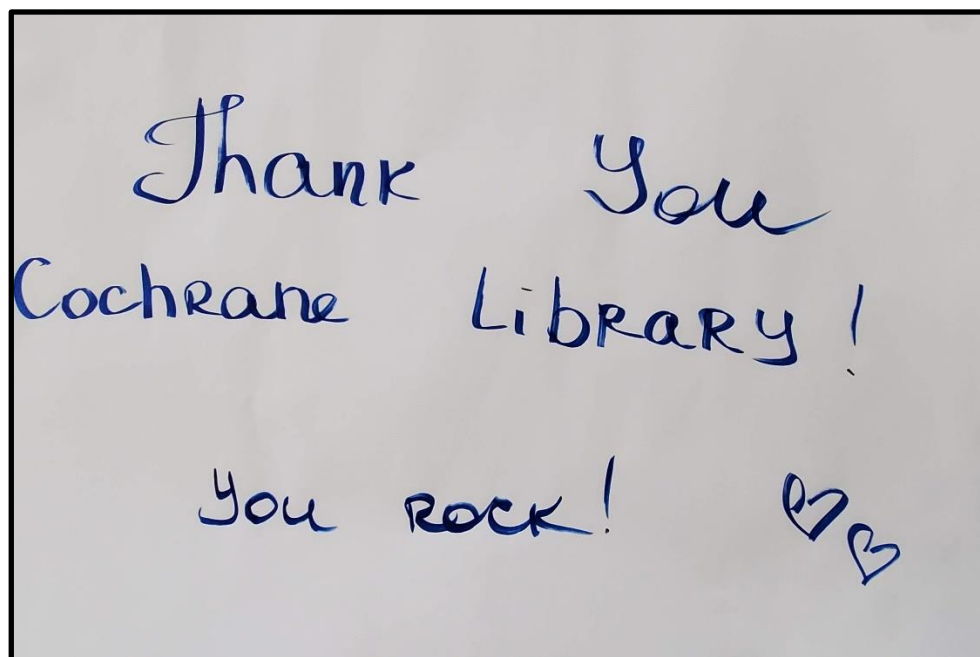 Thank You
Cochrane Library!
You rock!